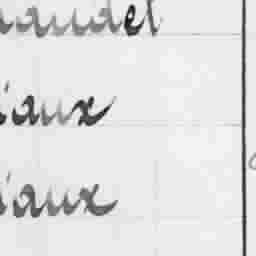 audet
iaux
iaux